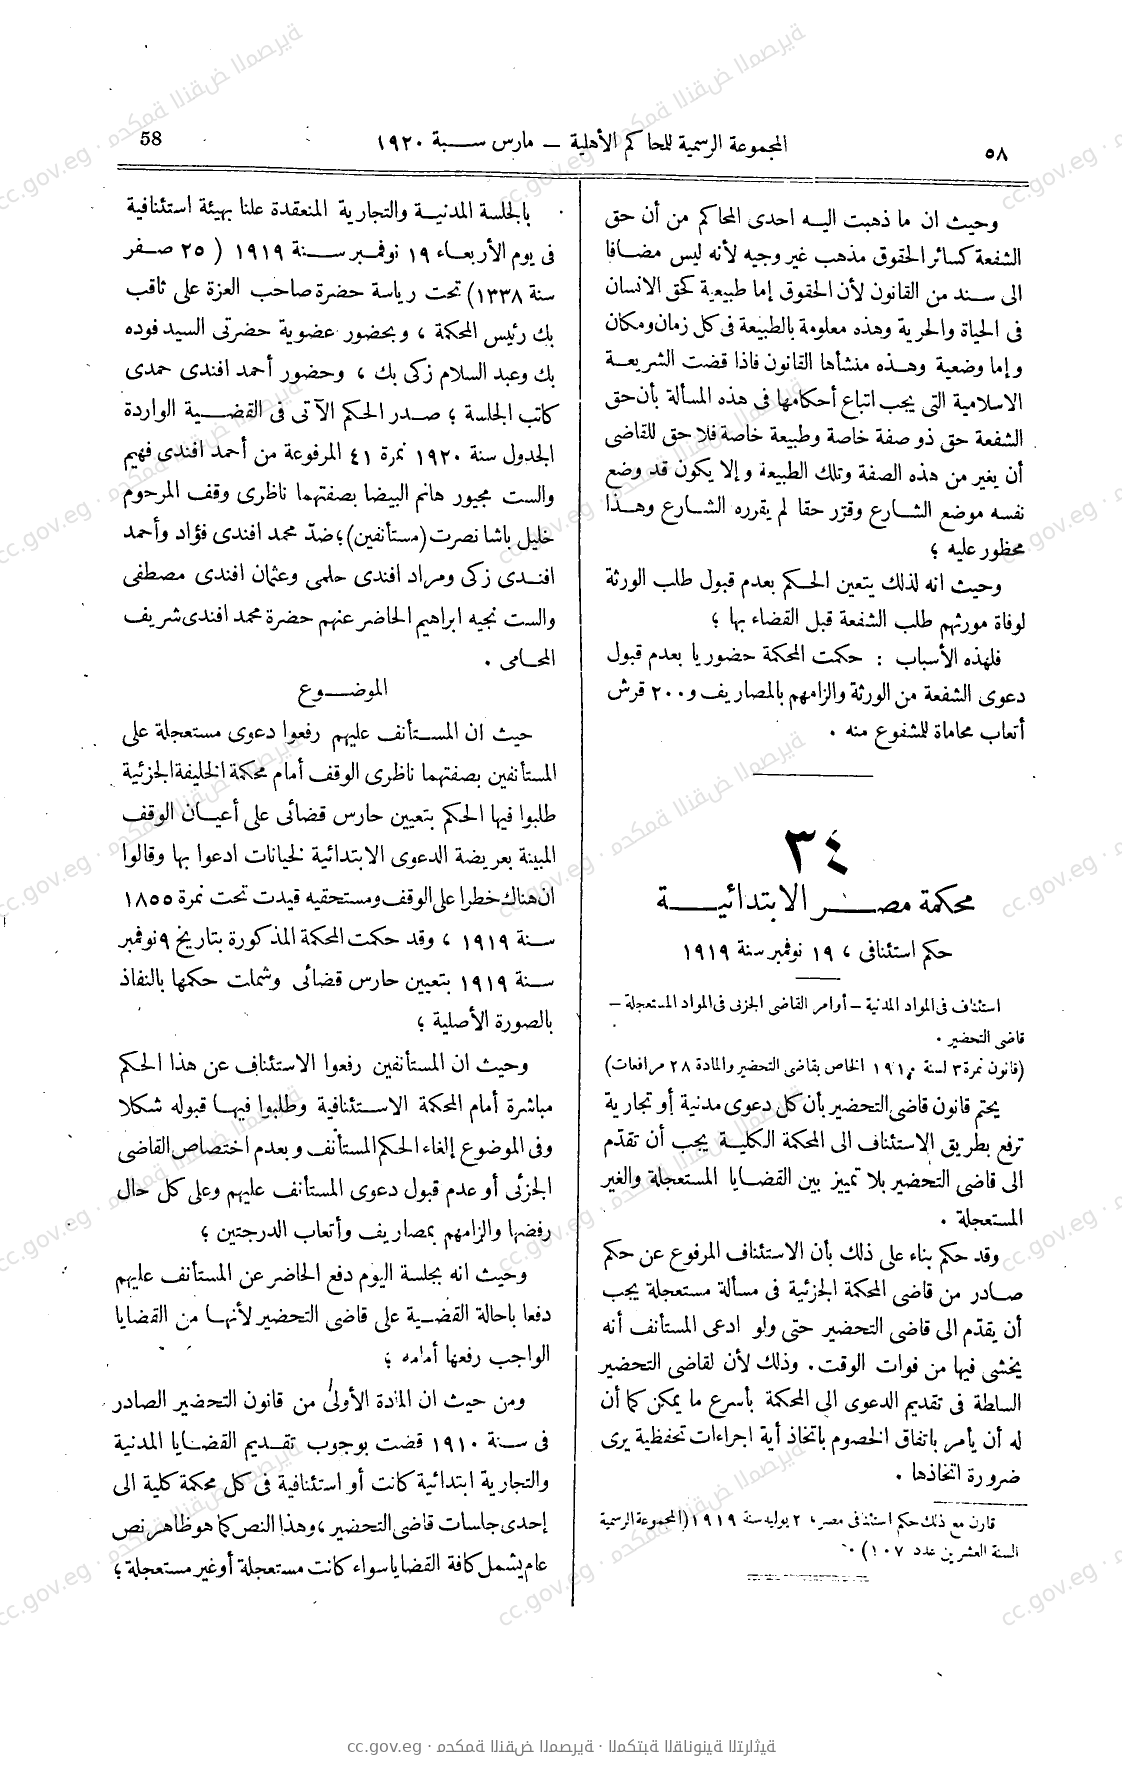 ٥٨
المجموعة الرسمية للمحاكم الأهلية – مارس سنة ١٩٢٠
58
وحيث ان ما ذهبت اليه احدى المحاكم من أن حق
الشفعة كسائر الحقوق مذهب غير وجيه لأنه ليس مضافا
الى سند من القانون لأن الحقوق إما طبيعية كحق الانسان
فى الحياة والحرية وهذه معلومة بالطبيعة فى كل زمان ومكان
وإما وضعية وهذه منشأها القانون فاذا قضت الشريعة
الاسلامية التى يجب اتباع أحكامها فى هذه المسألة بأن حق
الشفعة حق ذو صفة خاصة وطبيعة خاصة فلا حق للقاضى
أن يغير من هذه الصفة وتلك الطبيعة وإلا يكون قد وضع
نفسه موضع الشارع وقرّر حقا لم يقرره الشارع وهذا
محظور عليه ؛
وحيث انه لذلك يتعين الحكم بعدم قبول طلب الورثة
لوفاة مورثهم طلب الشفعة قبل القضاء بها ؛
فلهذه الأسباب : حكمت المحكمة حضوريا بعدم قبول
دعوى الشفعة من الورثة والزامهم بالمصاريف و٢٠٠ قرش
أتعاب محاماة للمشفوع منه .
٣٤
محكمة مصر الابتدائية
حكم استئنافى ، ١٩ نوفمبر سنة ١٩١٩
استئناف فى المواد المدنية – أوامر القاضى الجزئى فى المواد المستعجلة –
قاضى التحضير .
(قانون نمرة ٣ لسنة ١٩١٠ الخاص بقاضى التحضير والمادة ٢٨ مرافعات)
يحتم قانون قاضى التحضير بأن كل دعوى مدنية أو تجارية
ترفع بطريق الاستئناف الى المحكمة الكلية يجب أن تقدّم
الى قاضى التحضير بلا تمييز بين القضايا المستعجلة والغير
المستعجلة .
وقد حكم بناء على ذلك بأن الاستئناف المرفوع عن حكم
صادر من قاضى المحكمة الجزئية فى مسألة مستعجلة يجب
أن يقدّم الى قاضى التحضير حتى ولو ادعى المستأنف أنه
يخشى فيها من فوات الوقت. وذلك لأن لقاضى التحضير
السلطة فى تقديم الدعوى الى المحكمة بأسرع ما يمكن كما أن
له أن يأمر باتفاق الخصوم باتخاذ أية اجراءات تحفظية يرى
ضرورة اتخاذها .
قارن مع ذلك حكم استئنافى مصر، ٢ يوليه سنة ١٩١٩ (المجموعة الرسمية
السنة العشرين عدد ١٠٧) .
بالجلسة المدنية والتجارية المنعقدة علنا بهيئة استئنافية
فى يوم الأربعاء ١٩ نوفمبر سنة ١٩١٩ (٢٥ صفر
سنة ١٣٣٨) تحت رياسة حضرة صاحب العزة على ثاقب
بك رئيس المحكمة ، وبحضور عضوية حضرتى السيد فوده
بك وعبد السلام زكى بك ، وحضور أحمد افندى حمدى
كاتب الجلسة ؛ صدر الحكم الآتى فى القضية الواردة
الجدول سنة ١٩٢٠ نمرة ٤١ المرفوعة من أحمد افندى فهيم
والست مجيور هانم البيضا بصفتهما ناظرى وقف المرحوم
خليل باشا نصرت (مستأنفين)؛ ضدّ محمد افندى فؤاد وأحمد
افندى زكى ومراد افندى حلمى وعثمان افندى مصطفى
والست نجيه ابراهيم الحاضر عنهم حضرة محمد افندى شريف
المحامى .
الموضوع
حيث ان المستأنف عليهم رفعوا دعوى مستعجلة على
المستأنفين بصفتهما ناظرى الوقف أمام محكمة الخليفة الجزئية
طلبوا فيها الحكم بتعيين حارس قضائى على أعيان الوقف
المبينة بعريضة الدعوى الابتدائية لخيانات ادعوا بها وقالوا
ان هناك خطرا على الوقف ومستحقيه قيدت تحت نمرة ١٨٥٥
سنة ١٩١٩ ، وقد حكمت المحكمة المذكورة بتاريخ ٩ نوفمبر
سنة ١٩١٩ بتعيين حارس قضائى وشملت حكمها بالنفاذ
بالصورة الأصلية ؛
وحيث ان المستأنفين رفعوا الاستئناف عن هذا الحكم
مباشرة أمام المحكمة الاستئنافية وطلبوا فيها قبوله شكلا
وفى الموضوع إلغاء الحكم المستأنف وبعدم اختصاص القاضى
الجزئى أو عدم قبول دعوى المستأنف عليهم وعلى كل حال
رفضها والزامهم بمصاريف وأتعاب الدرجتين ؛
وحيث انه بجلسة اليوم دفع الحاضر عن المستأنف عليهم
دفعا باحالة القضية على قاضى التحضير لأنها من القضايا
الواجب رفعها أمامه ؛
ومن حيث ان المادة الأولى من قانون التحضير الصادر
فى سنة ١٩١٠ قضت بوجوب تقديم القضايا المدنية
والتجارية ابتدائية كانت أو استئنافية فى كل محكمة كلية الى
إحدى جلسات قاضى التحضير ، وهذا النص كما هو ظاهر نص
عام يشمل كافة القضايا سواء كانت مستعجلة أو غير مستعجلة ؛
cc.gov.eg · محكمة النقض المصرية · المكتبة القانونية التراثية